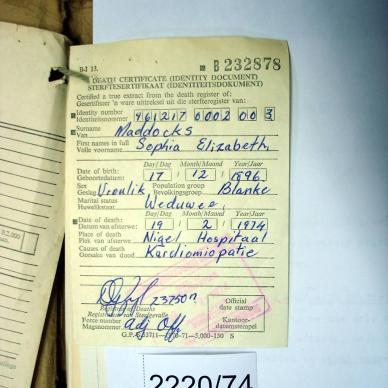 BI 13. B 232878
DEATH CERTIFICATE (IDENTITY DOCUMENT)
STERFTESERTIFIKAAT (IDENTITEITSDOKUMENT)
Certified a true extract from the death register of:
Gesertifiseer 'n ware uittreksel uit die sterfteregister van:
Identity number
Identiteitsnommer 961217 0002 00 3
Surname
Van Maddocks
First names in full
Volle voorname Sophia Elizabeth
Day/Dag Month/Maand Year/Jaar
Date of birth:
Geboortedatum: 17 / 12 / 1896
Sex Population group
Geslag Vroulik Bevolkingsgroep Blanke
Marital status
Huwelikstaat Weduwee
Day/Dag Month/Maand Year/Jaar
Date of death:
Datum van afsterwe: 19 / 2 / 1974
Place of death
Plek van afsterwe Nigel Hospitaal
Causes of death
Oorsake van dood Kardiomiopatie
23750n
Registrar of Deaths
Registrateur van Sterfgevalle
Force number
Magsnommer adj Off
Official
date stamp
Kantoor-
datumstempel
2220/74